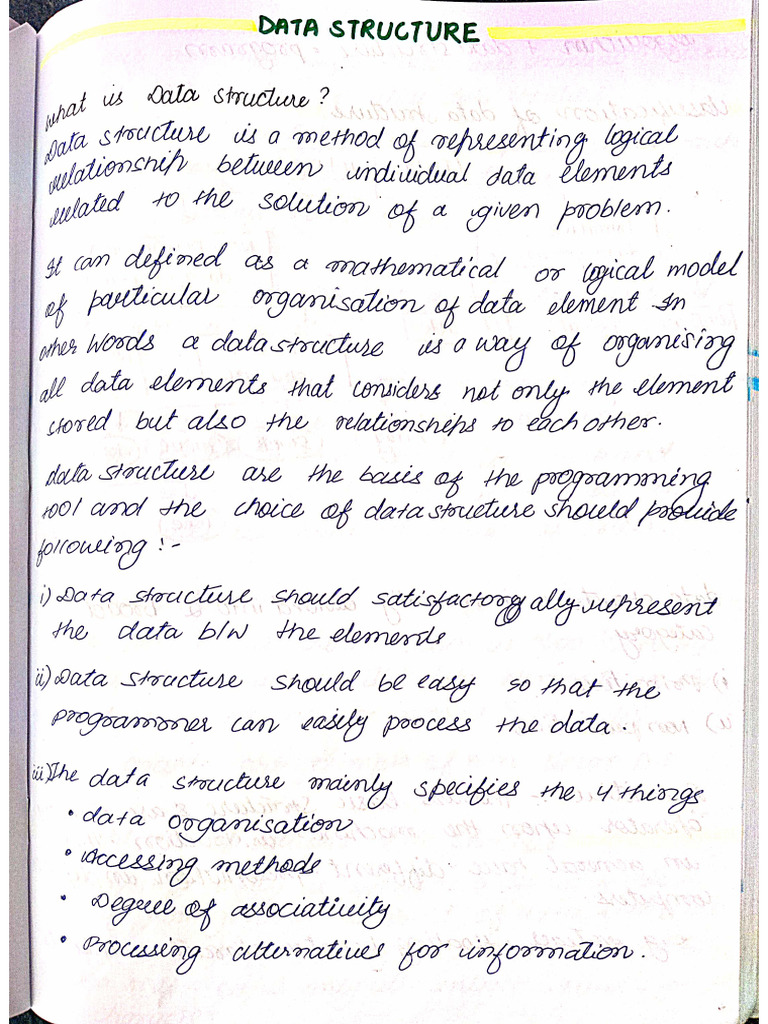 DATA STRUCTURE
What is Data structure?
Data structure is a method of representing logical
relationship between individual data elements
related to the solution of a given problem.
It can defined as a mathematical or logical model
of particular organisation of data element In
other words a data structure is a way of organising
all data elements that considers not only the element
stored but also the relationships to each other.
data structure are the basis of the programming
tool and the choice of data structure should provide
following :-
i) Data structure should satisfactorally represent
the data b/w the elements
ii) Data structure should be easy so that the
programmer can easily process the data.
iii) The data structure mainly specifies the 4 things
• data organisation
• Accessing methods
• Degree of associativity
• Processing alternatives for information.